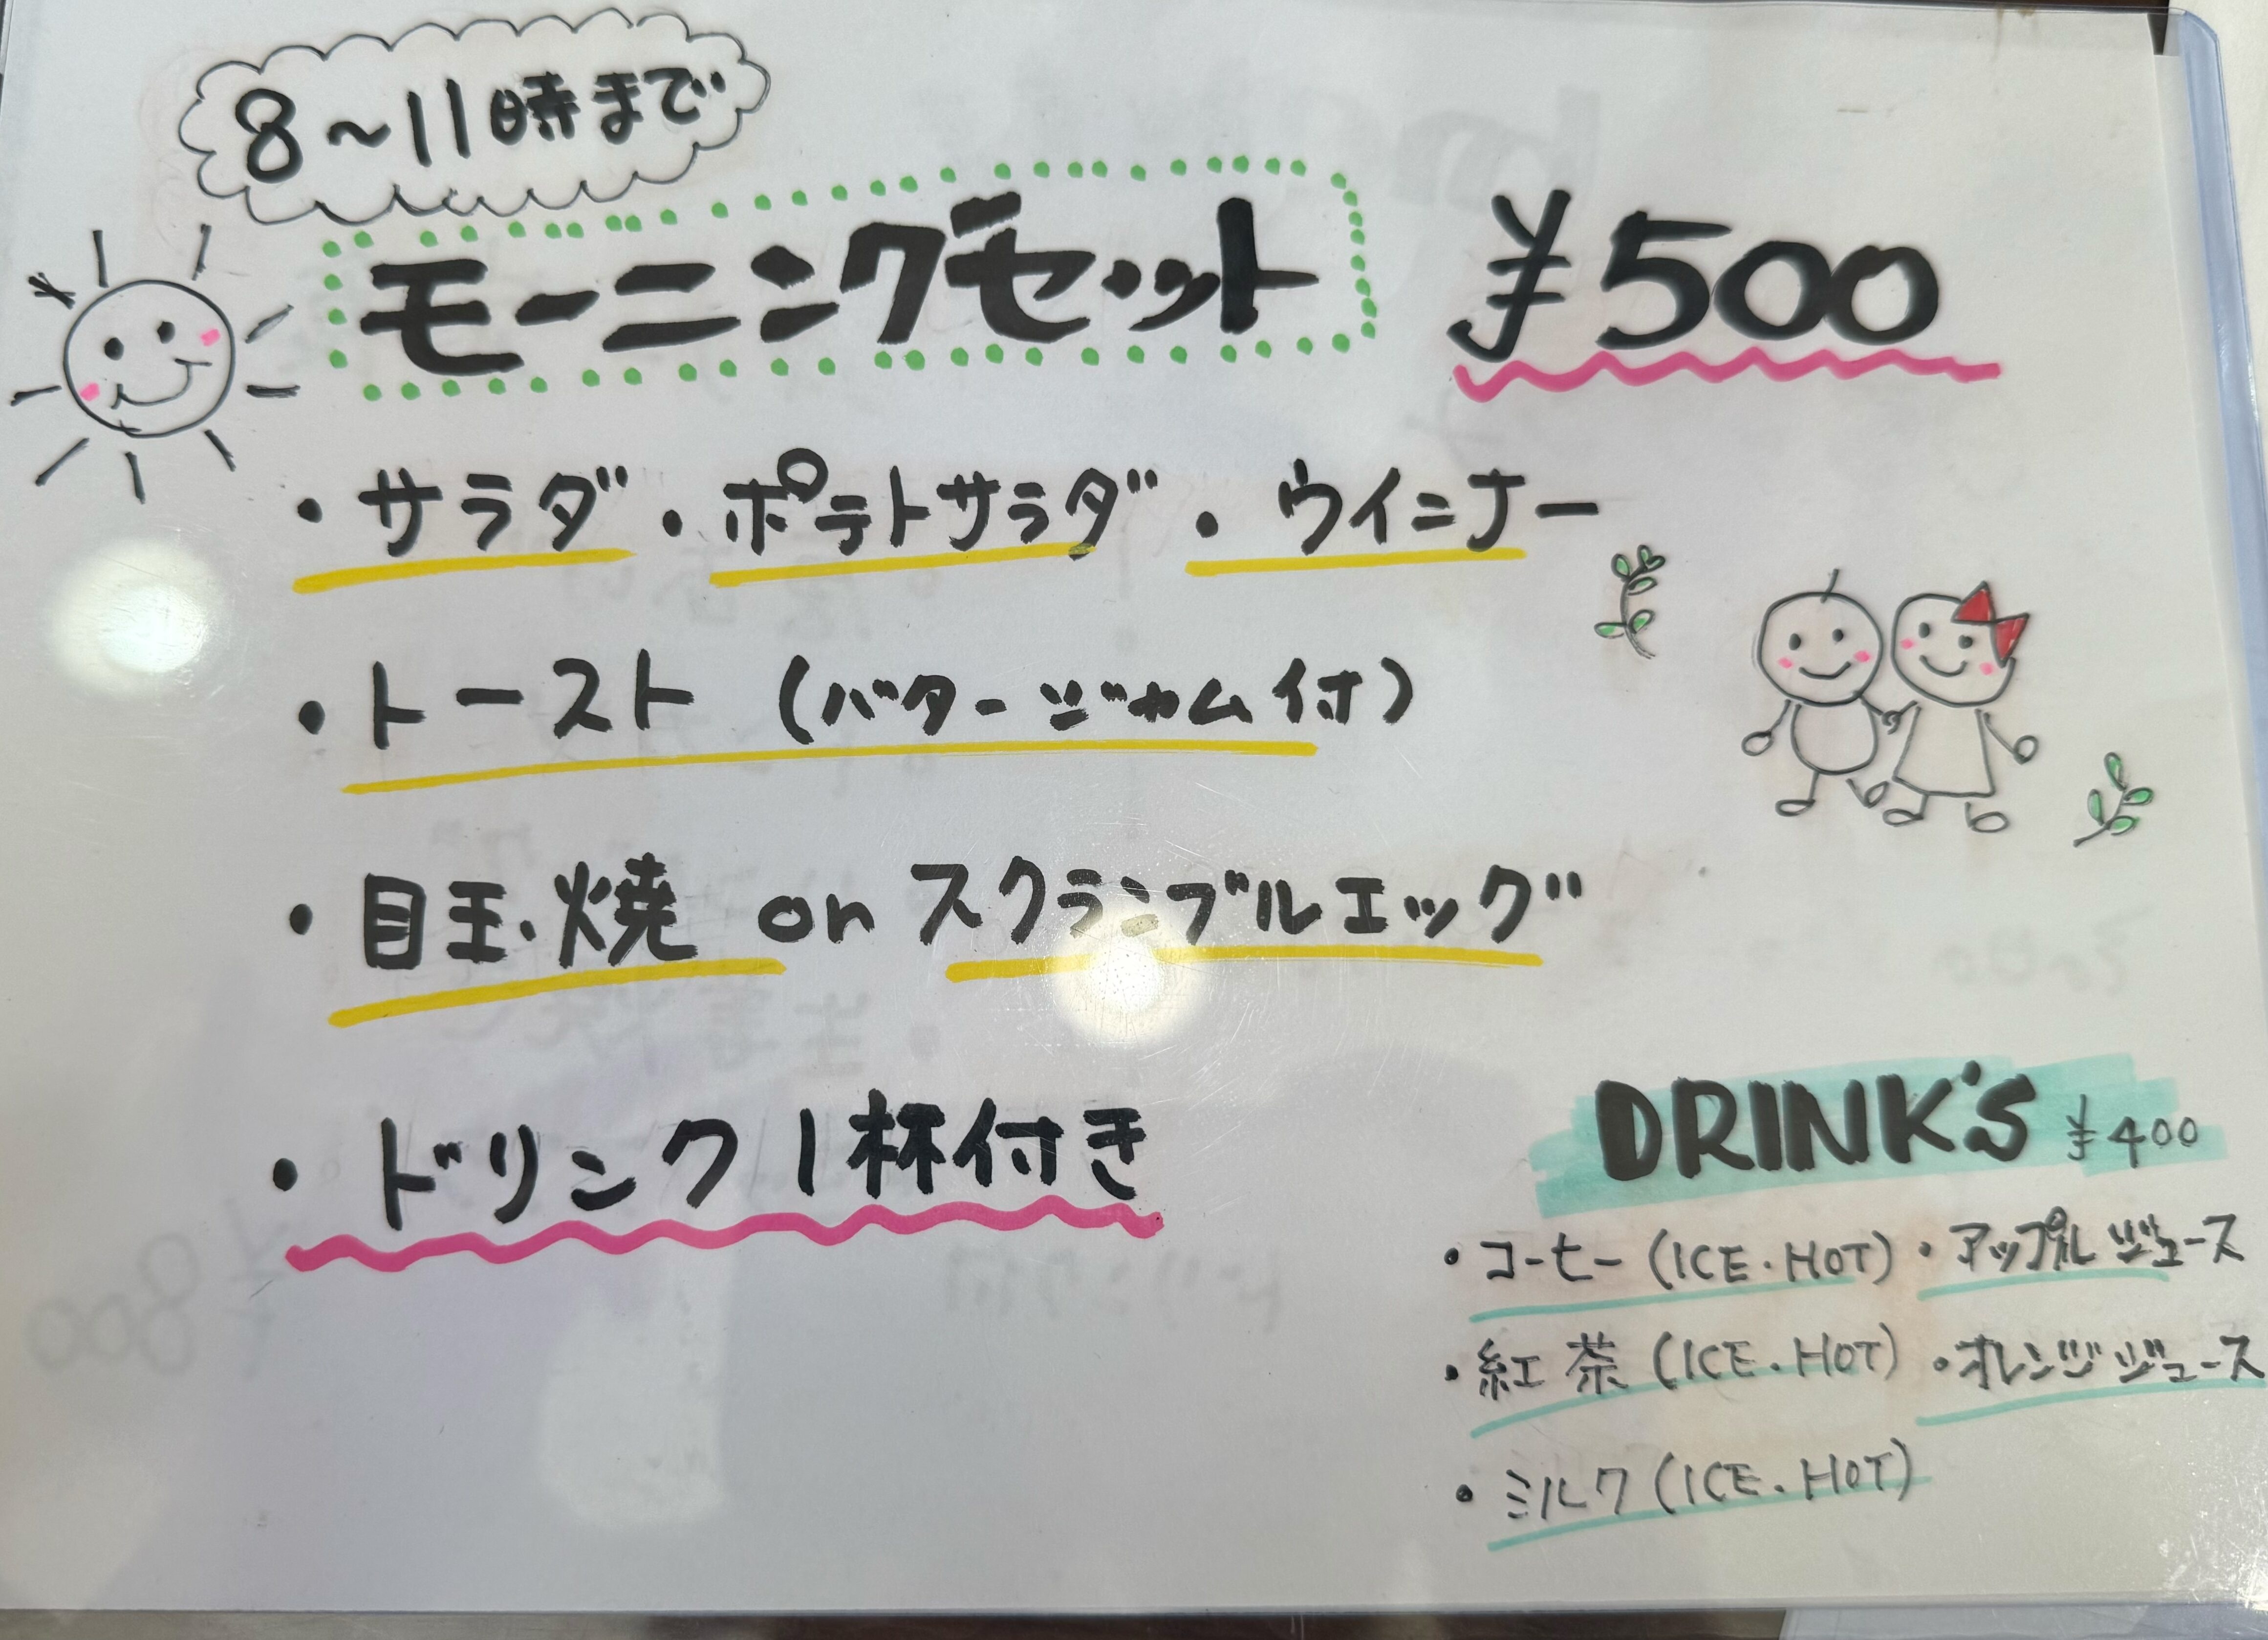 8～11時まで
モーニングセット ¥500
・サラダ・ポテトサラダ・ウインナー
・トースト (バタージャム付)
・目玉焼 or スクランブルエッグ
・ドリンク1杯付き
DRINK'S ¥400
・コーヒー (ICE・HOT) ・アップルジュース
・紅茶 (ICE・HOT) ・オレンジジュース
・ミルク (ICE・HOT)